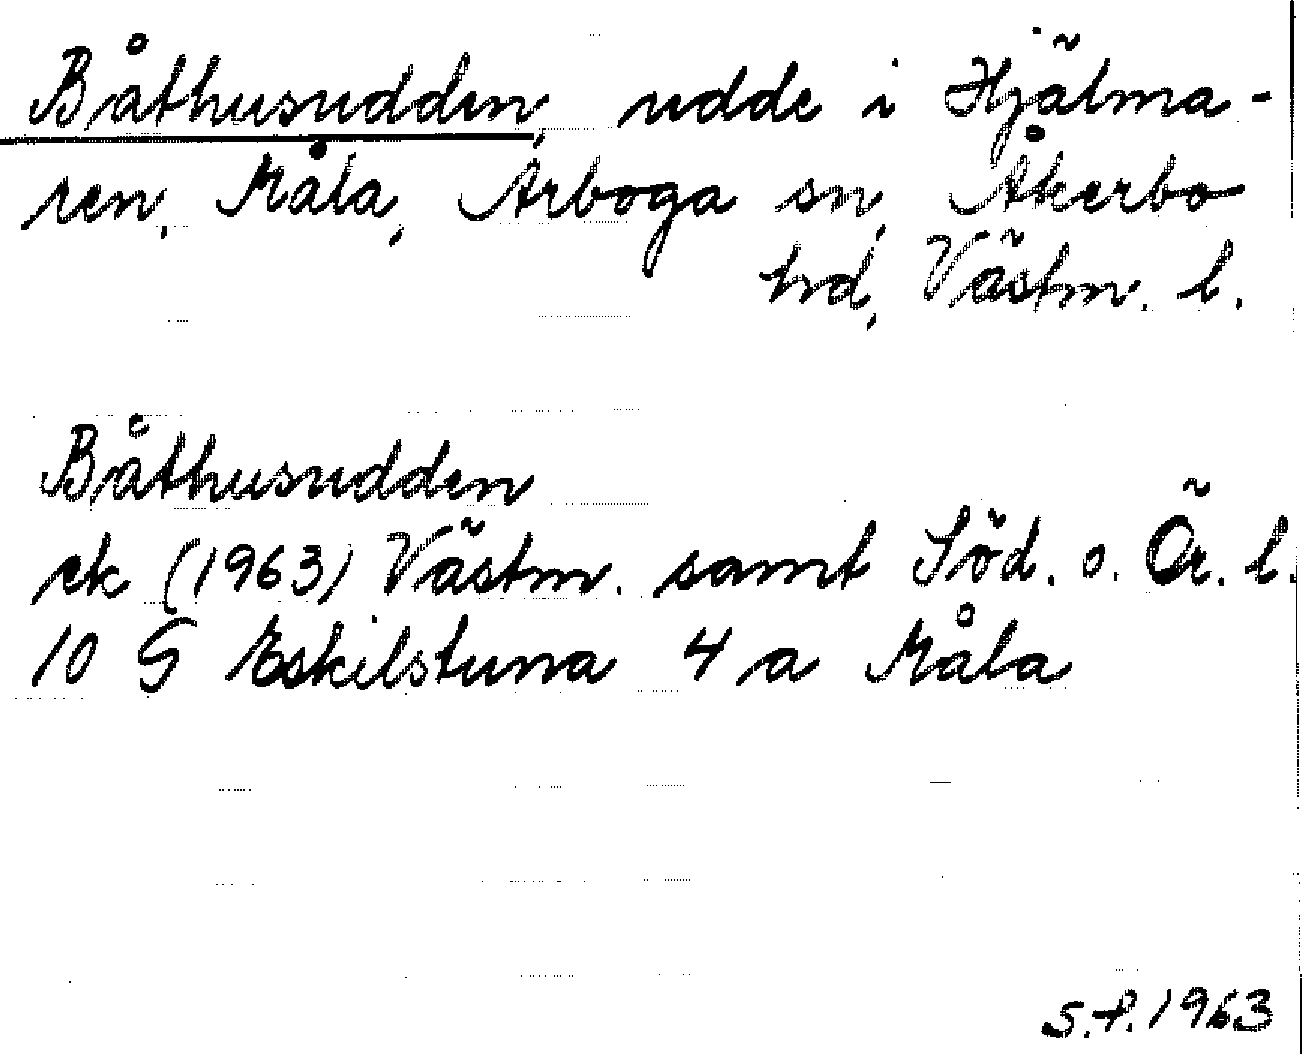 Båthusudden, udde i Hjälma-
ren, Måla, Arboga sn, Åkerbo
hd, Västm. l.
Båthusudden
ek (1963) Västm. samt Söd. o. Ör. l.
10 G Eskilstuna 4 a Måla
S.P. 1963